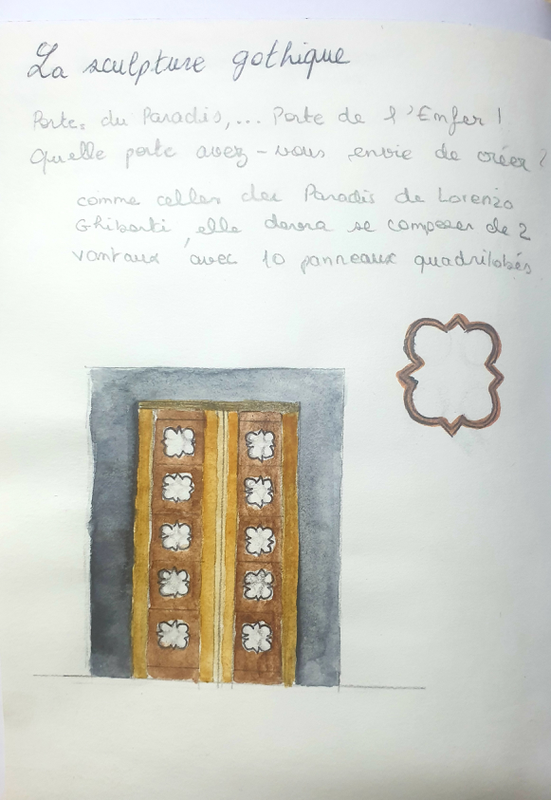 La sculpture gothique
Porte du Paradis,... Porte de l'Enfer !
Quelle porte avez-vous envie de créer ?
comme celle des Paradis de Lorenzo
Ghiberti, elle devra se composer de 2
vantaux avec 10 panneaux quadrilobés